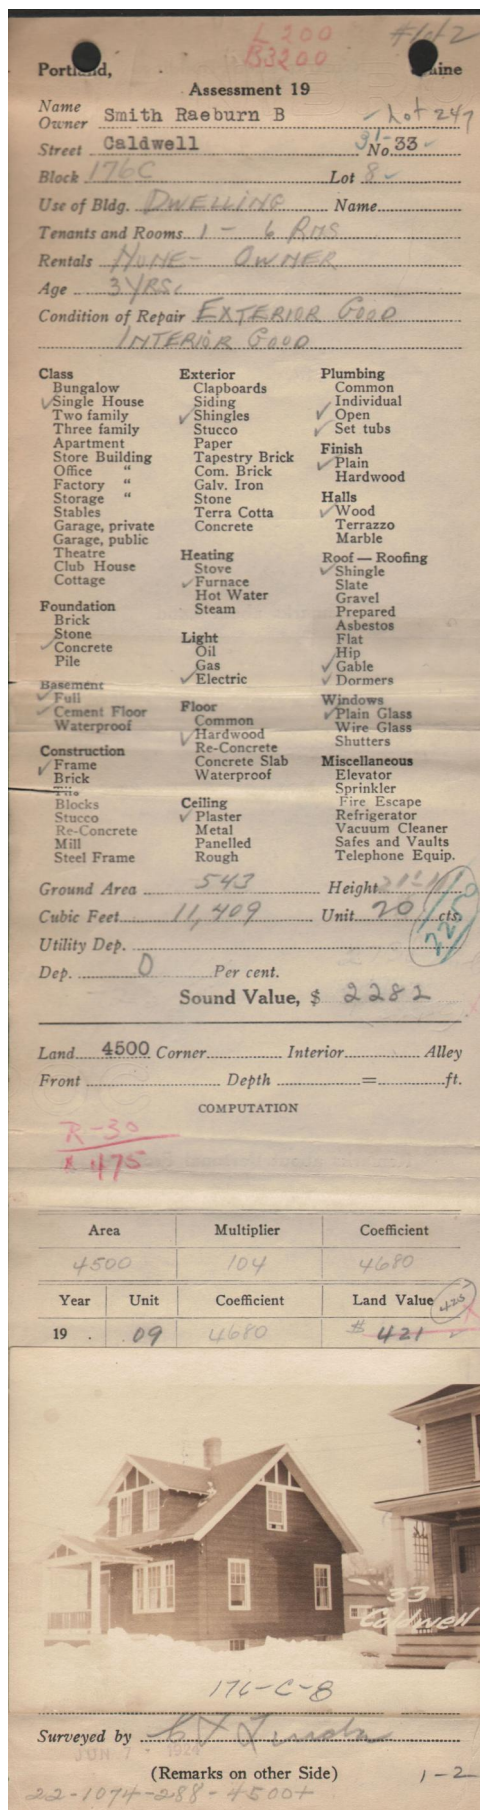 L 200 #1 of 2
B3200
Portland, Maine
Assessment 19
Name
Owner Smith Raeburn B ✓ Lot 247
Street Caldwell 31- No. 33 ✓
Block 176C Lot 8 ✓
Use of Bldg. DWELLING Name
Tenants and Rooms 1 - 6 RMS
Rentals NONE - OWNER
Age 3 YRS.
Condition of Repair EXTERIOR GOOD
INTERIOR GOOD
Class
Bungalow
✓ Single House
Two family
Three family
Apartment
Store Building
Office "
Factory "
Storage "
Stables
Garage, private
Garage, public
Theatre
Club House
Cottage
Foundation
Brick
Stone
✓ Concrete
Pile
Basement
✓ Full
✓ Cement Floor
Waterproof
Construction
✓ Frame
Brick
Tile
Blocks
Stucco
Re-Concrete
Mill
Steel Frame
Exterior
Clapboards
Siding
✓ Shingles
Stucco
Paper
Tapestry Brick
Com. Brick
Galv. Iron
Stone
Terra Cotta
Concrete
Heating
Stove
✓ Furnace
Hot Water
Steam
Light
Oil
Gas
✓ Electric
Floor
Common
✓ Hardwood
Re-Concrete
Concrete Slab
Waterproof
Ceiling
✓ Plaster
Metal
Panelled
Rough
Plumbing
Common
✓ Individual
✓ Open
✓ Set tubs
Finish
✓ Plain
Hardwood
Halls
✓ Wood
Terrazzo
Marble
Roof — Roofing
✓ Shingle
Slate
Gravel
Prepared
Asbestos
Flat
Hip
✓ Gable
✓ Dormers
Windows
✓ Plain Glass
Wire Glass
Shutters
Miscellaneous
Elevator
Sprinkler
Fire Escape
Refrigerator
Vacuum Cleaner
Safes and Vaults
Telephone Equip.
Ground Area 543 Height
Cubic Feet 11,409 Unit 20 cts.
2250
Utility Dep.
Dep. 0 Per cent.
Sound Value, $ 2282
Land 4500 Corner Interior Alley
Front Depth = ft.
COMPUTATION
R-30
$ 475
Area Multiplier Coefficient
4500 104 4680
Year Unit Coefficient Land Value 425
19 . .09 4680 $ 421
33
Caldwell
176-C-8
Surveyed by
JUN 7 - 1924
(Remarks on other Side) 1-2
22-1074-288-4500+